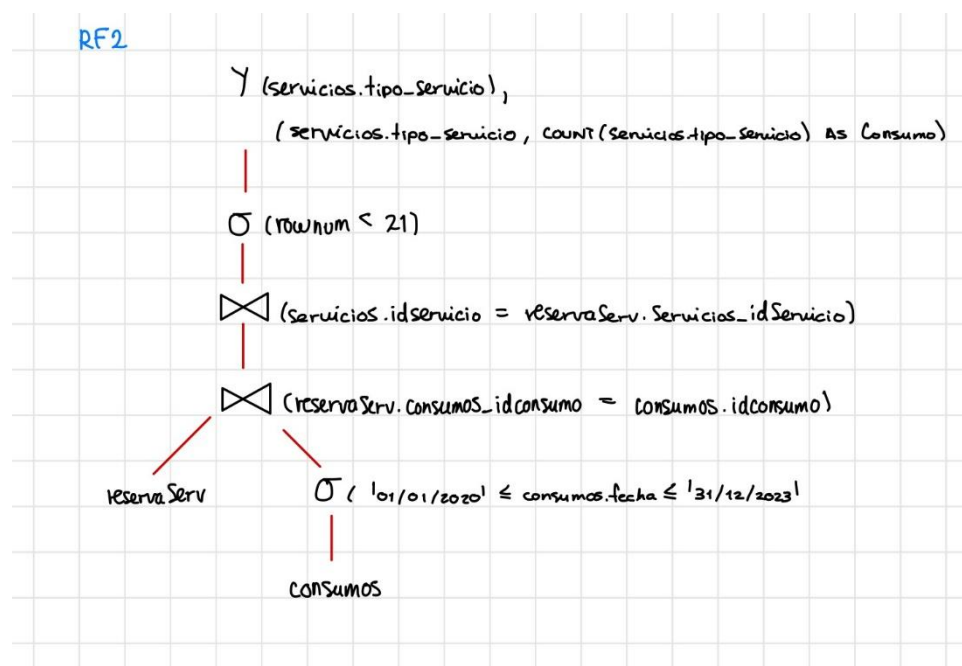 RF2
γ (servicios.tipo_servicio),
(servicios.tipo_servicio, COUNT(servicios.tipo_servicio) AS Consumo)
σ (rownum < 21)
⋈ (servicios.idservicio = reservaServ.Servicios_idServicio)
⋈ (reservaServ.consumos_idconsumo = consumos.idconsumo)
reservaServ
σ ( '01/01/2020' ≤ consumos.fecha ≤ '31/12/2023'
consumos